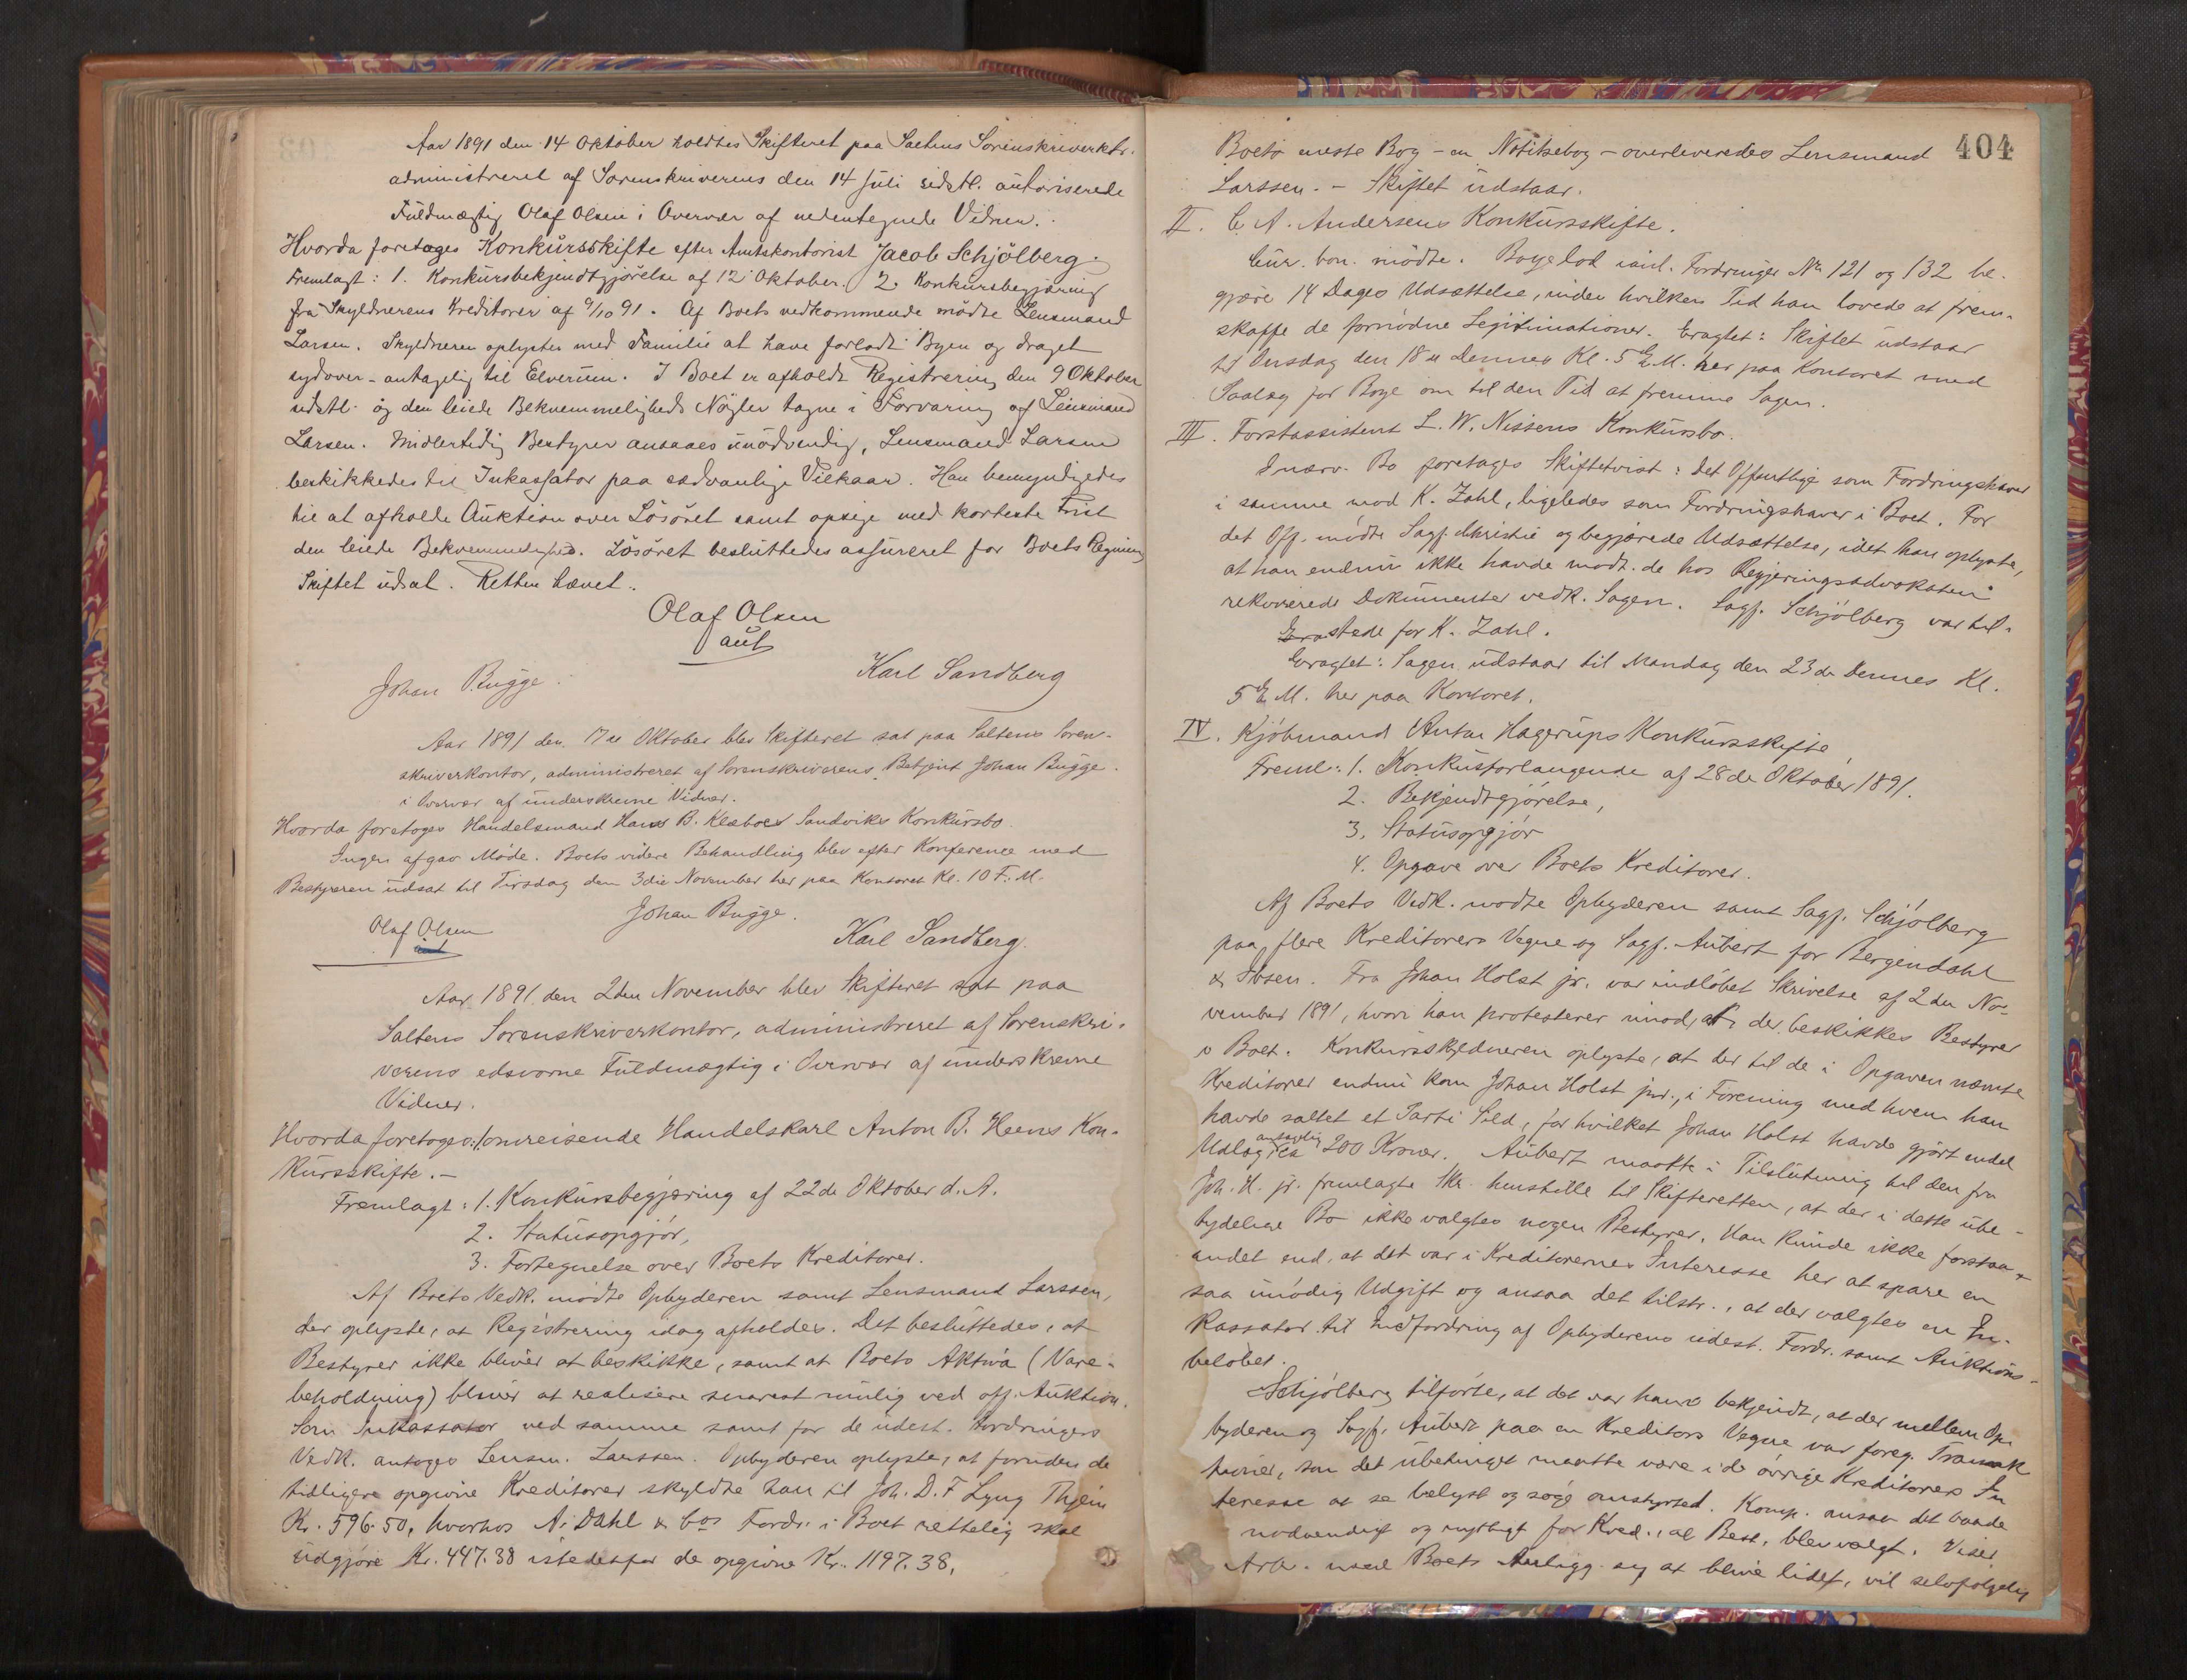 Aar 1891 den 14 Oktober holdtes Skifteret paa Saltens Sorenskriverktr.
administreret af Sorenskriverens den 14 Juli sidstl. autoriserede
Fuldmægtig Olaf Olsen i Overvær af nedentegnede Vidner.
Hvorda foretages Konkursskifte efter Amtskontorist Jacob Schjölberg.
Fremlagt: 1. Konkursbekjendtgjörelse af 12 Oktober. 2. Konkursbegjæring
fra Skyldnerens Kreditorer af 9/10 91. Af Boets vedkommende mödte Lensmand
Larsen. Skyldneren oplystes med Familie at have forladt Byen og draget
sydover - antagelig til Elverum. I Boet er afholdt Registrering den 9 Oktober
sidstl. og den leiede Bekvemmeligheds Nögler tagne i Forvaring af Lensmand
Larsen. Midlertidig Bestyrer ansaaes unödvendig, Lensmand Larsen
beskikkedes til Inkassator paa sædvanlige Vilkaar. Han bemyndigedes
til at afholde Auktion over Lösöret samt opsige med korteste Frist
den leiede Bekvemmelighed. Lösöret besluttedes assureret for Boets Regning
Skiftet udsat. Retten hævet.
Olaf Olsen
aut
Johan Bugge.
Karl Sandberg
Aar 1891 den 17de Oktober blev Skifteret sat paa Saltens Soren-
skriverkontor, administreret af Sorenskriverens Betjent Johan Bugge.
i Overvær af underskrevne Vidner.
Hvorda foretoges Handelsmand Hans B. Klæboes Sandvikes Konkursbo.
Ingen afgav Möde. Boets videre Behandling blev efter Konference med
Bestyreren udsat til Tirsdag den 3die November her paa Kontoret Kl. 10 F.M.
Johan Bugge.
Olaf Olsen
aut
Karl Sandberg.
Aar 1891 den 2den November blev Skifteret sat paa
Saltens Sorenskriverkontor, administreret af Sorenskri-
verens edsvorne Fuldmægtig i Overvær af underskrevne
Vidner.
Hvorda foretoges: I omreisende Handelskarl Anton B. Heens Kon-
kursskifte.-
Fremlagt: 1. Konkursbegjæring af 22de Oktober d. A.
2. Statusopgjör,
3. Fortegnelse over Boets Kreditorer.
Af Boets Vedk. mödte Opbyderen samt Lensmand Larssen,
der oplyste, at Registrering idag afholdes. Det besluttedes, at
Bestyrer ikke bliver at beskikke, samt at Boets Aktiva (Vare-
beholdning) bliver at realisere snarest mulig ved off. Auktion.
Som Inkassator ved samme samt for de udest. Fordringers
Vedk. antoges Lensm. Larssen. Opbyderen oplyste, at foruden de
tidligere opgivne Kreditorer skyldte han til Joh. D. F Lyng Thjem
Kr. 596.50, hvorhos A. Dahl & Cos Fordr. i Boet rettelig skal
udgjöre Kr. 447.38 istedetfor de opgivne Kr. 1197.38.
404
Boets eneste Bog - en Notitsebog - overleveredes Lensmand
Larssen. - Skiftet udstaar.
II. C. A. Andersens Konkursskifte.
Cur. bon. mödte. Boye lod anl. Fordringer No. 121 og 132 be-
gjære 14 Dages Udsættelse, inden hvilken Tid han lovede at frem-
skaffe de fornödne Legitimationer. Eragtet: Skiftet udstaar
til Onsdag den 18de Dennes Kl. 5 E.M. her paa Kontoret med
Paalæg for Boye om til den Tid at fremme Sagen.
III. Forstassistent L. W. Nissens Konkursbo.
I nærv. Bo foretages Skiftetvist: det Offentlige som Fordringshaver
i samme mod K. Zahl, ligeledes som Fordringshaver i Boet. For
det Off. mödte Sagf. Christie og begjærede Udsættelse, idet han oplyste,
at han endnu ikke havde modt. de hos Regjeringsadvokaten
rekvirerede Dokumenter vedk. Sagen. Sagf. Schjölberg var til-
Era stede for K. Zahl.
Eragtet: Sagen udstaar til Mandag den 23de Dennes Kl.
5 E.M. her paa Kontoret.
IV. Kjöbmand Anton Hagerups Konkursskifte,
Freml: 1. Konkursforlangende af 28de Oktober 1891.
2. Bekjendtgjörelse,
3. Statusopgjör
4. Opgave over Boets Kreditorer.
Af Boets Vedk. mödte Opbyderen samt Sagf. Schjölberg
paa flere Kreditorers Vegne og Sagf. Aubert for Bergendahl
& Ibsen. Fra Johan Holst jr. var indlöbet Skrivelse af 2den No-
vember 1891, hvori han protesterer imod, at der beskikkes Bestyrer
i Boet. Konkursskyldneren oplyste, at der til de i Opgaven nævnte
Kreditorer endnu kom Johan Holst jnr., i Forening med hvem han
havde saltet et Parti Sild, for hvilket Johan Holst havde gjört endel
Udlæg ca 200 Kroner. Aubert maatte i Tilslutning til den fra
Joh. H. jr. fremlagte Skr. henstille til Skifteretten, at der i dette ube-
tydelige Bo ikke valgtes nogen Bestyrer. Han kunde ikke forstaa
andet end, at det var i Kreditorernes Interesse her at spare en
saa unödig Udgift og ansaa det tilstr., at der valgtes en In-
kassator til Indfordring af Opbyderens udest. Fordr. samt Auktions-
belöbet.
Schjölberg tilförte, at det var ham bekjendt, at der mellem Op-
byderen og Sagf. Aubert paa en Kreditors Vegne var foreg. Transak
tioner, som det ubetinget maatte være i de övrige Kreditorers In
teresse at se belyst og söge omstyrted. Komp. ansaa det baade
nödvendigt og nyttigt for Kred., at Best. blev valgt. Viser
Arb. med Boets Anligg. sig at blive lidet, vil selvfölgelig